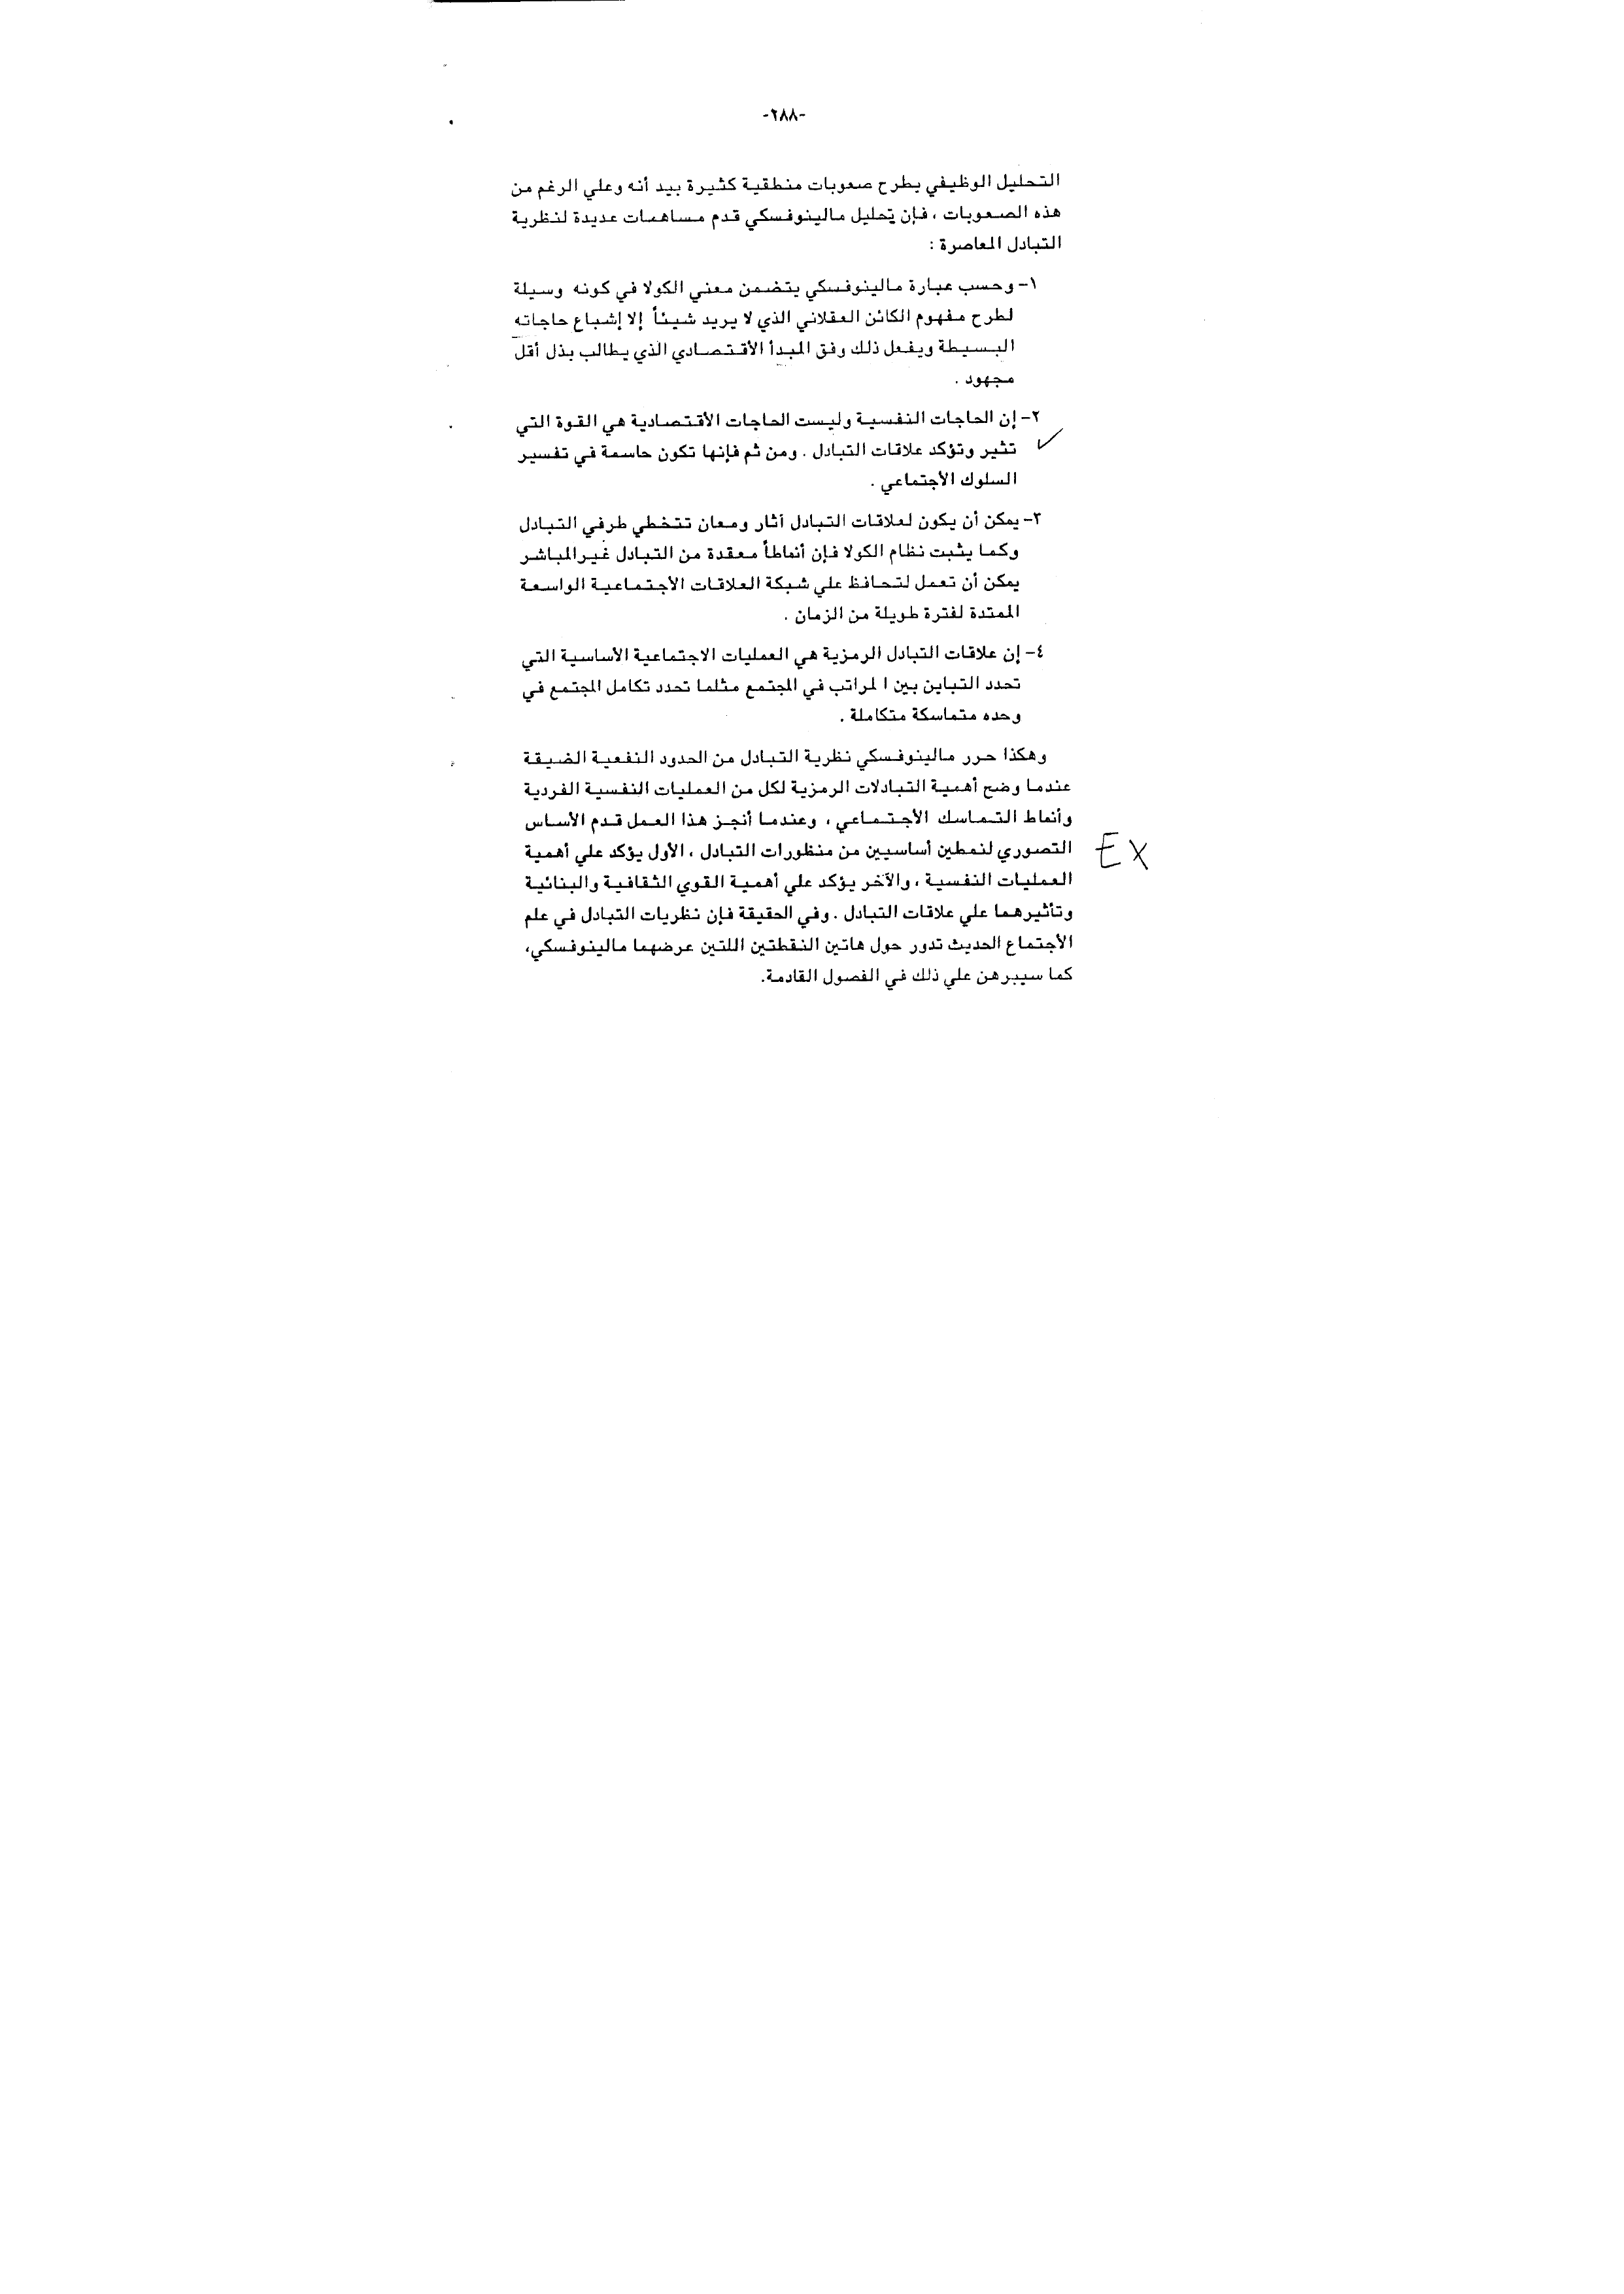 -٢٨٨-
التحليل الوظيفي يطرح صعوبات منطقية كثيرة بيد أنه وعلي الرغم من
هذه الصعوبات ، فإن تحليل مالينوفسكي قدم مساهمات عديدة لنظرية
التبادل المعاصرة :
١- وحسب عبارة مالينوفسكي يتضمن معني الكولا في كونه وسيلة
لطرح مفهوم الكائن العقلاني الذي لا يريد شيئاً إلا إشباع حاجاته
البسيطة ويفعل ذلك وفق المبدأ الأقتصادي الذي يطالب بذل أقل
مجهود .
٢- إن الحاجات النفسية وليست الحاجات الأقتصادية هي القوة التي
✓ تثير وتؤكد علاقات التبادل . ومن ثم فإنها تكون حاسمة في تفسير
السلوك الأجتماعي .
٣- يمكن أن يكون لعلاقات التبادل أثار ومعان تتخطي طرفي التبادل
وكما يثبت نظام الكولا فإن أنماطاً معقدة من التبادل غير المباشر
يمكن أن تعمل لتحافظ علي شبكة العلاقات الأجتماعية الواسعة
الممتدة لفترة طويلة من الزمان .
٤- إن علاقات التبادل الرمزية هي العمليات الاجتماعية الأساسية التي
تحدد التباين بين ا لمراتب في المجتمع مثلما تحدد تكامل المجتمع في
وحده متماسكة متكاملة .
وهكذا حرر مالينوفسكي نظرية التبادل من الحدود النفعية الضيقة
عندما وضح أهمية التبادلات الرمزية لكل من العمليات النفسية الفردية
وأنماط التماسك الأجتماعي ، وعندما أنجز هذا العمل قدم الأساس
EX التصوري لنمطين أساسيين من منظورات التبادل ، الأول يؤكد علي أهمية
العمليات النفسية ، والآخر يؤكد علي أهمية القوي الثقافية والبنائية
وتأثيرهما علي علاقات التبادل . وفي الحقيقة فإن نظريات التبادل في علم
الأجتماع الحديث تدور حول هاتين النقطتين اللتين عرضهما مالينوفسكي،
كما سيبرهن علي ذلك في الفصول القادمة.